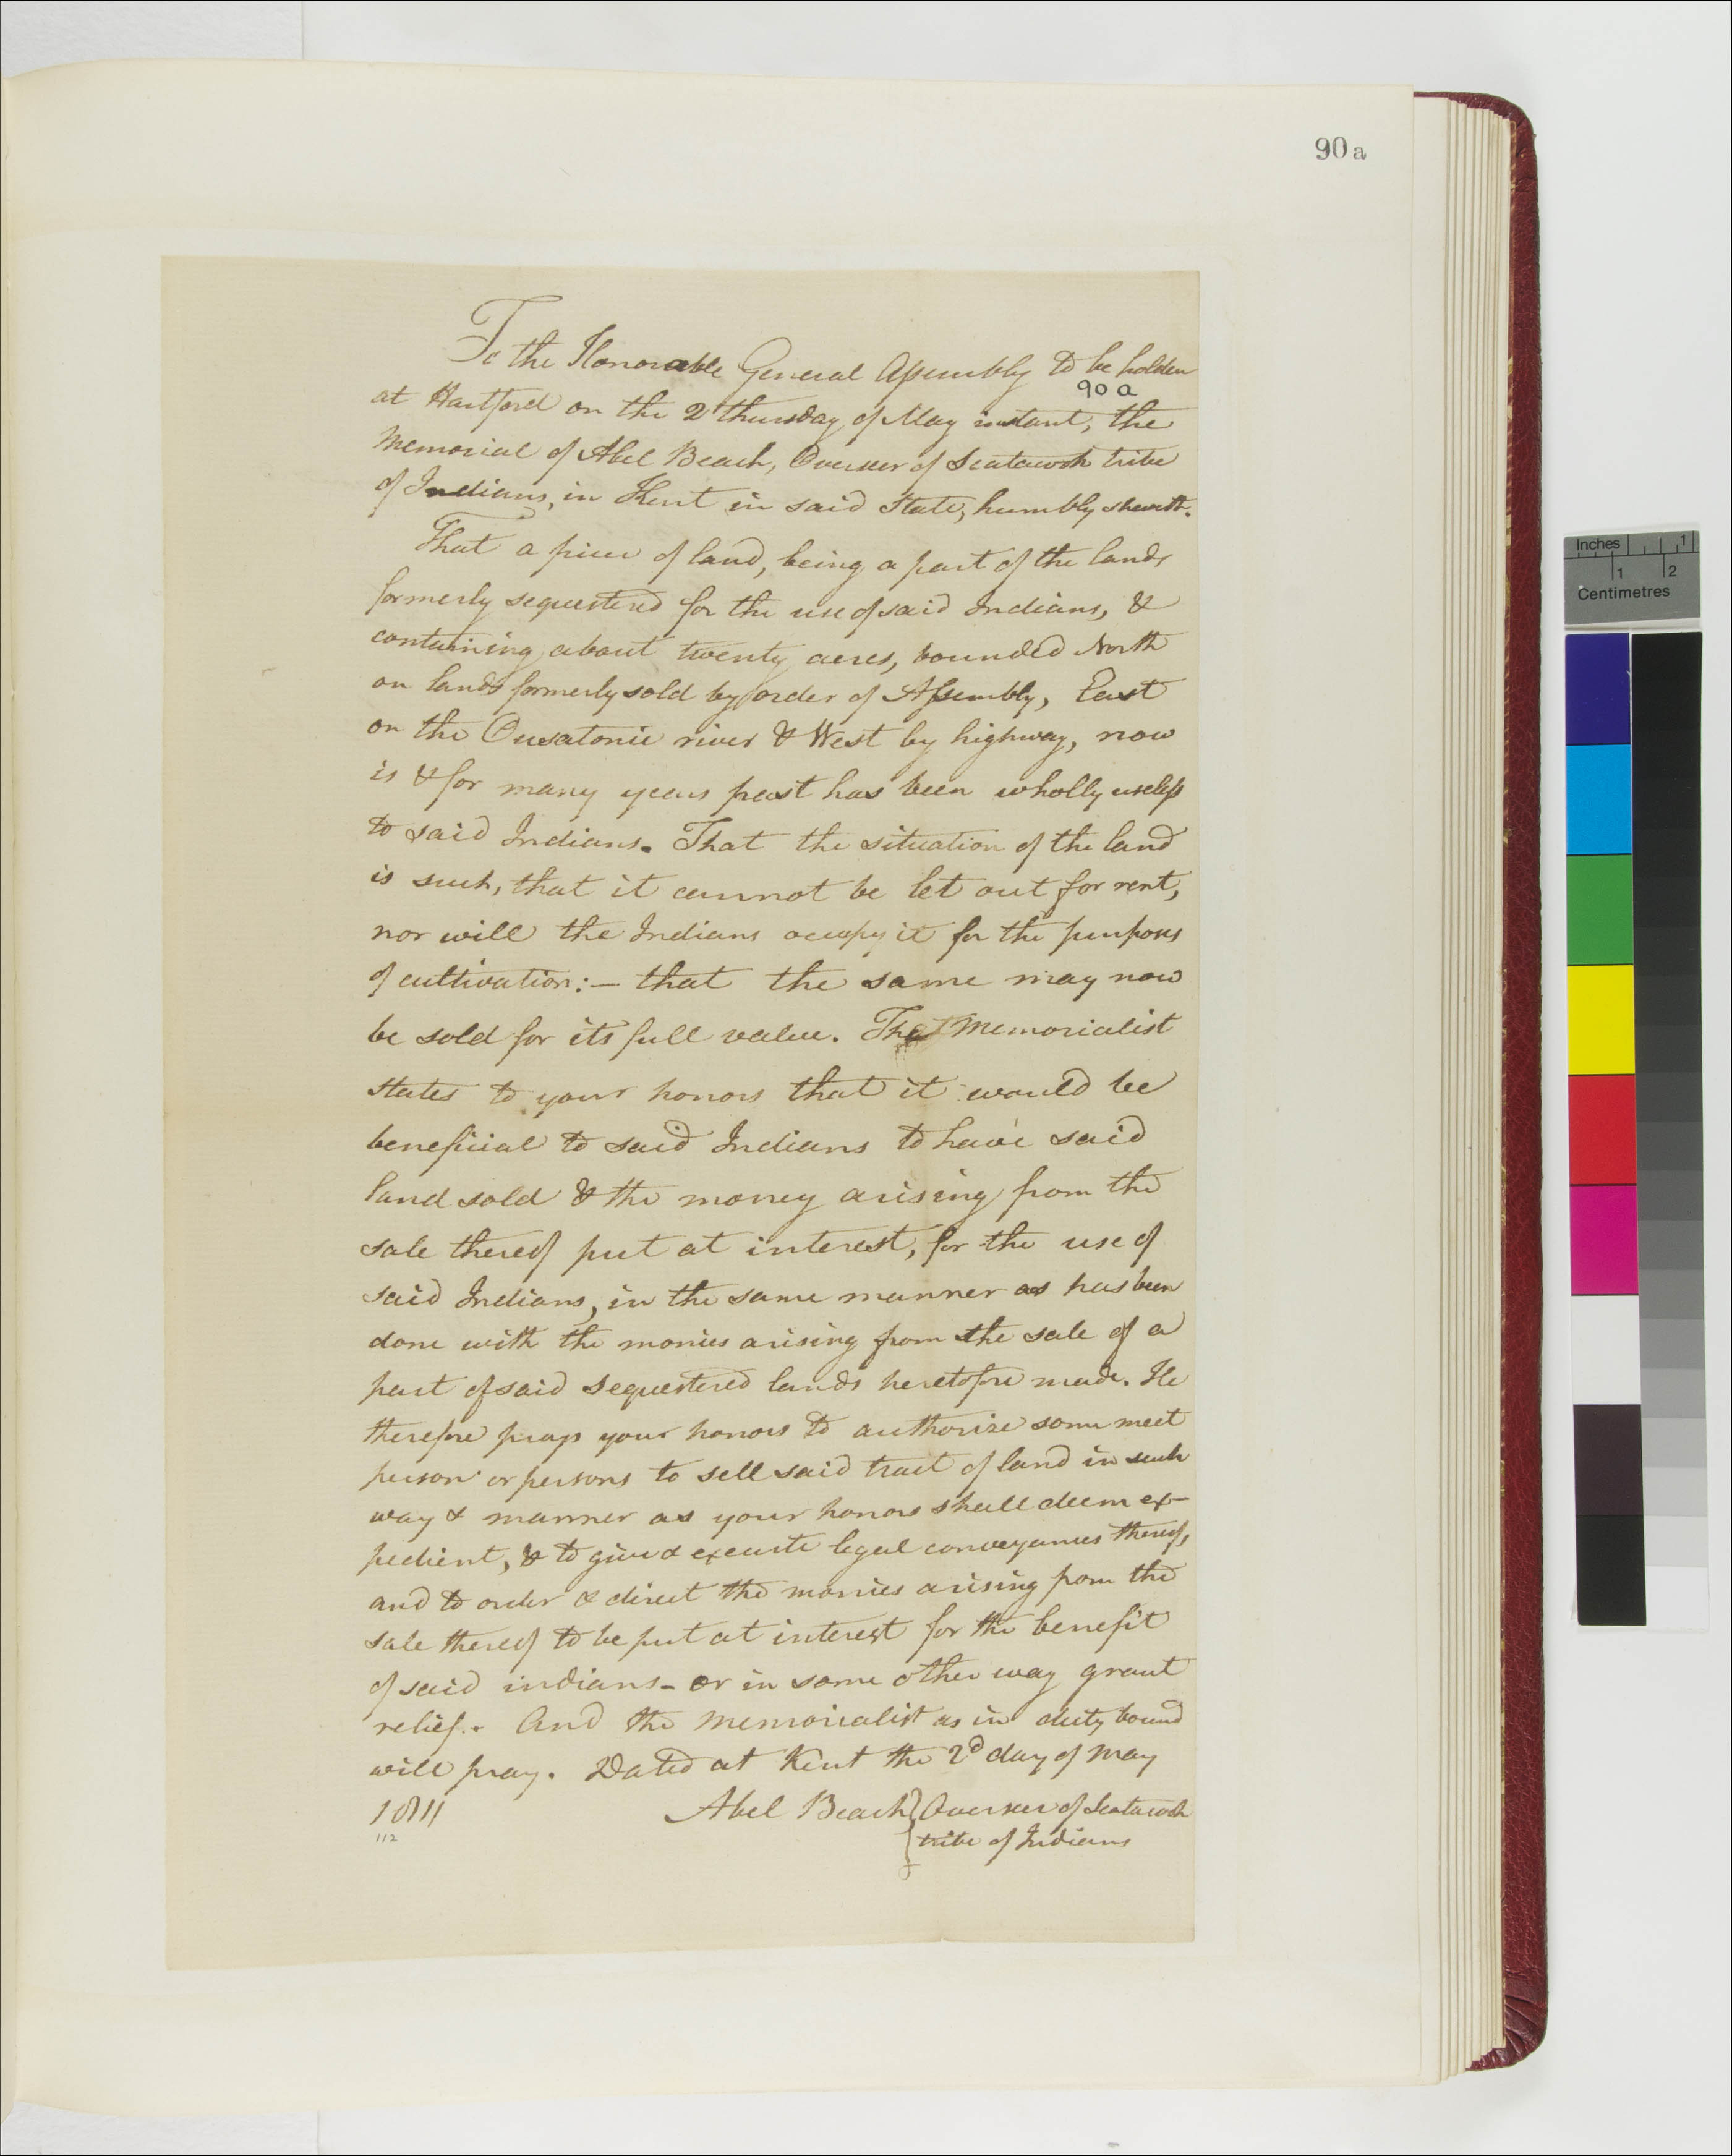 90a
To the Honorable General Assembly to be holden
90 a
at Hartford on the 2d thursday of May instant, the
Memorial of Abel Beach, Overseer of Scatacook tribe
of Indians, in Kent in said State, humbly sheweth.
That a piece of land, being a part of the lands
formerly sequestered for the use of said Indians, &
containing about twenty acres, bounded North
on lands formerly sold by order of Assembly, East
on the Ousatonic river & West by highway, now
is & for many years past has been wholly useless
to said Indians. That the situation of the land
is such, that it cannot be let out for rent,
nor will the Indians occupy it for the purposes
of cultivation:— that the same may now
be sold for its full value. The Memorialist
states to your honors that it would be
beneficial to said Indians to have said
land sold & the money arising from the
sale thereof put at interest, for the use of
said Indians, in the same manner as has been
done with the monies arising from the sale of a
part of said sequestered lands heretofore made. He
therefore prays your honors to authorize some meet
person or persons to sell said tract of land in such
way & manner as your honors shall deem ex-
pedient, & to give & execute legal conveyances thereof,
and to order & direct the monies arising from the
sale thereof to be put at interest for the benefit
of said indians- or in some other way grant
relief. And the Memorialist as in duty bound
will pray. Dated at Kent the 2d day of May
1811 Abel Beach } Overseer of Scatacook
112 { tribe of Indians
Inches 1
1 2
Centimetres